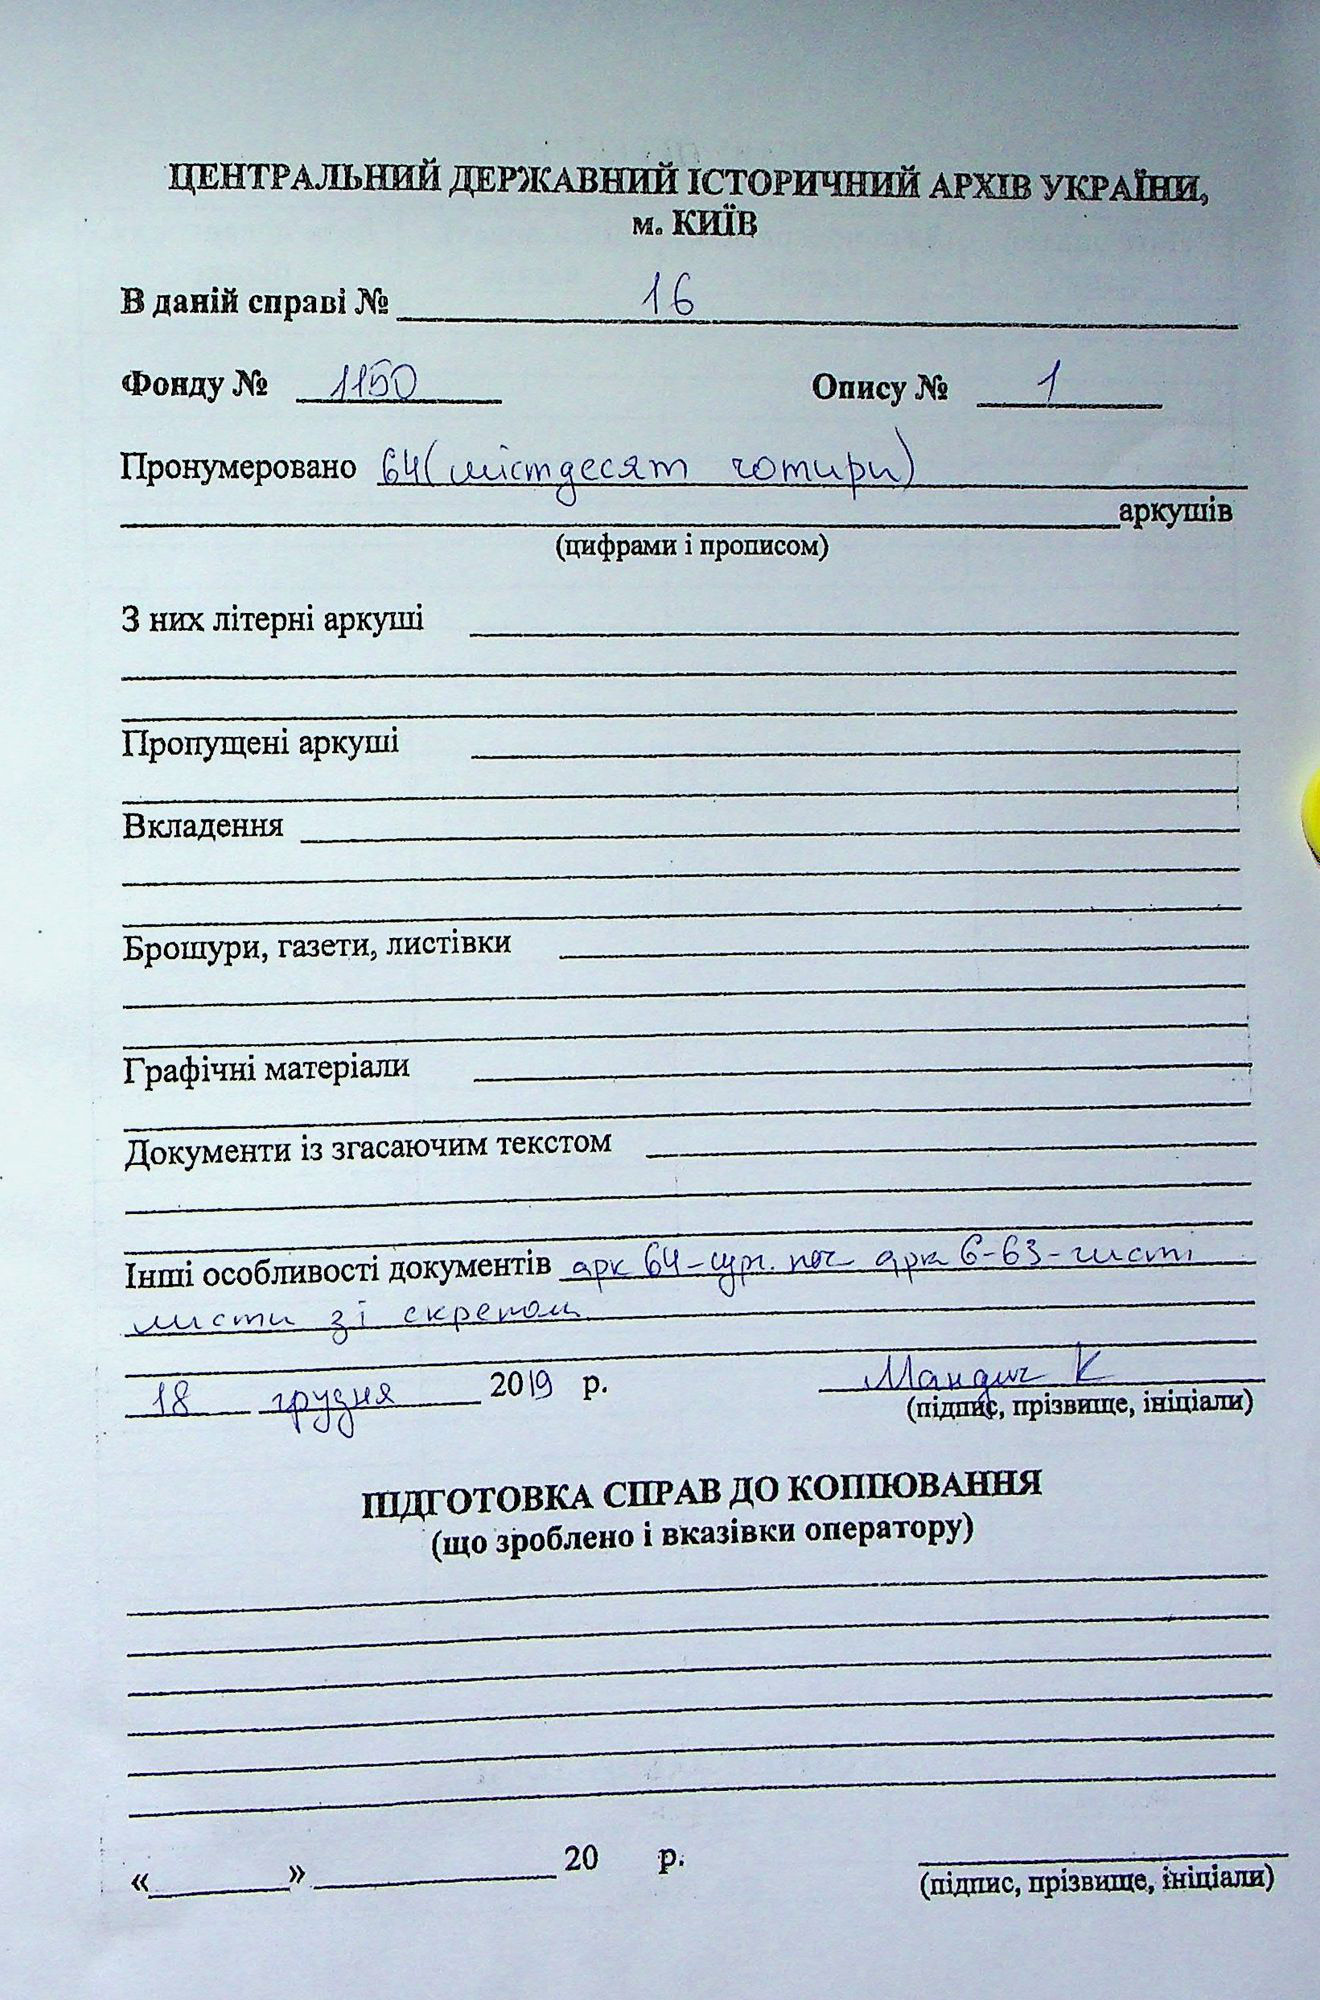 ЦЕНТРАЛЬНИЙ ДЕРЖАВНИЙ ІСТОРИЧНИЙ АРХІВ УКРАЇНИ,
м. КИЇВ
В даній справі № 16
Фонду № 1150 Опису № 1
Пронумеровано 64 (шістдесят чотири)
аркушів
(цифрами і прописом)
З них літерні аркуші
Пропущені аркуші
Вкладення
Брошури, газети, листівки
Графічні матеріали
Документи із згасаючим текстом
Інші особливості документів арк 64-сург. печ арк 6-63-чисті
листи зі скрепом
18 грудня 2019 р. Мандич К
(підпис, прізвище, ініціали)
ПІДГОТОВКА СПРАВ ДО КОПІЮВАННЯ
(що зроблено і вказівки оператору)
« » 20 р.
(підпис, прізвище, ініціали)